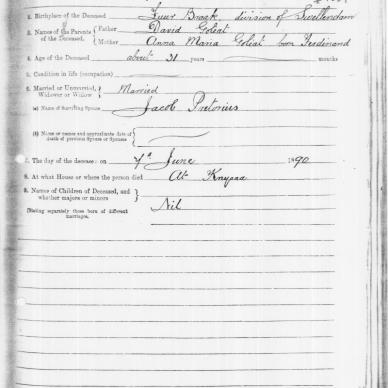 2. Birthplace of the Deceased Zuur Braak division of Swellendam
3. Names of the Parents of the Deceased. Father David Goleat
Mother Anna Maria Goleat born Ferdinand
4. Age of the Deceased about 31 years months
5. Condition in life (occupation)
6. Married or Unmarried, Widower or Widow Married
(a) Name of Surviving Spouse Jacob Pretorius
(b) Name or names and approximate date of death of previous Spouse or Spouses
7. The day of the decease: on 7th June 1890
8. At what House or where the person died At Knysna
9. Names of Children of Deceased, and whether majors or minors Nil
(Stating separately those born of different marriages.)